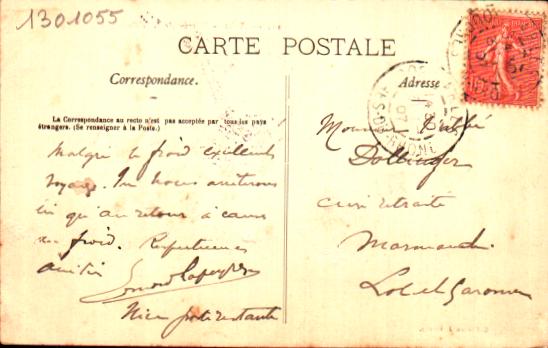 1301055
CARTE POSTALE
Correspondance.
Adresse
La Correspondance au recto n'est pas acceptée par tous les pays
étrangers. (Se renseigner à la Poste.)
Malgré le froid excellent
voyage.
qu'au retour à cause
du froid. Respectueuses
amitiés
Nice
Monsieur l'abbé
Dollinger
curé retraité
Marmande
Lot et Garonne